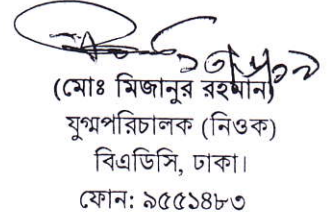 (মোঃ মিজানুর রহমান)
যুগ্মপরিচালক (নিওক)
বিএডিসি, ঢাকা।
ফোন: ৯৫৫১৪৮৩